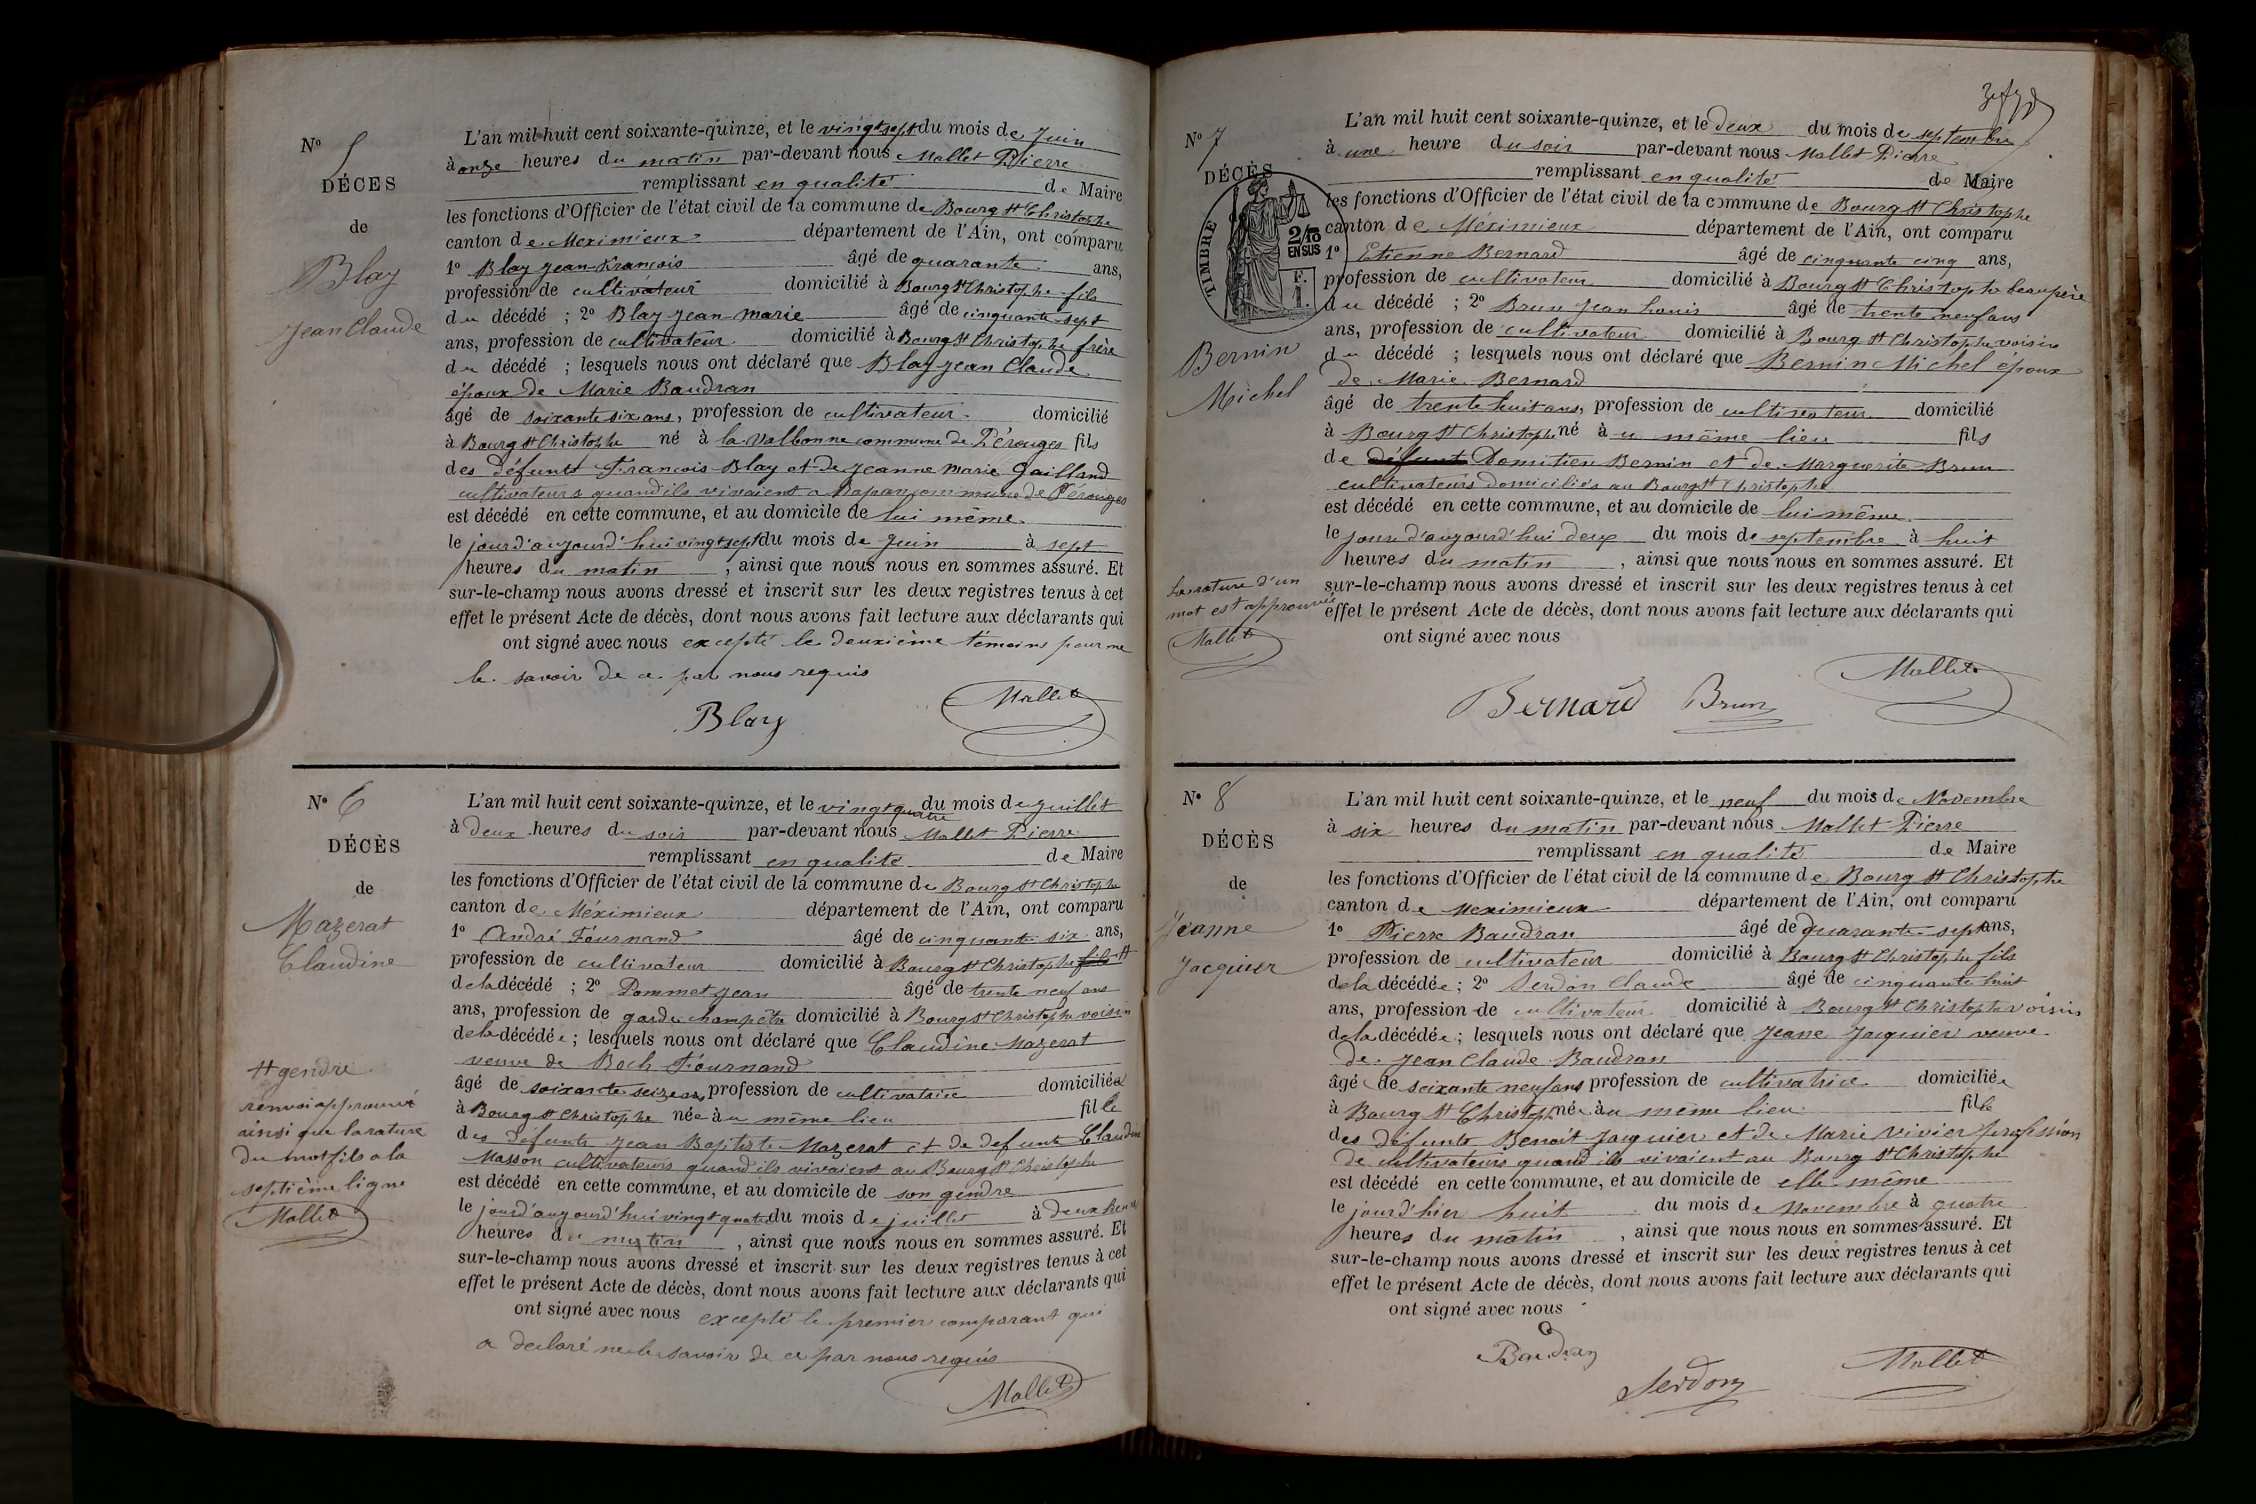 N° 5
DÉCES
de
Blay
Jean Claude
L'an mil huit cent soixante-quinze, et le vingt sept du mois de Juin
à onze heures du matin par-devant nous Mollet Pierre
remplissant en qualité de Maire
les fonctions d'Officier de l'état civil de la commune de Bourg St Christophe
canton de Meximieux département de l'Ain, ont comparu
1° Blay Jean-François âgé de quarante ans,
profession de cultivateur domicilié à Bourg St Christophe fils
du décédé ; 2° Blay Jean-Marie âgé de cinquante-sept
ans, profession de cultivateur domicilié à Bourg St Christophe frère
du décédé ; lesquels nous ont déclaré que Blay Jean Claude
époux de Marie Baudran
âgé de soixante six ans, profession de cultivateur domicilié
à Bourg St Christophe né à la Valbonne commune de Pérouges fils
des défunts François Blay et de Jeanne Marie Gailland
cultivateurs quand ils vivaient a commune de Pérouges
est décédé en cette commune, et au domicile de lui même
le jour d'aujourd'hui vingt sept du mois de Juin à sept
heures du matin, ainsi que nous nous en sommes assuré. Et
sur-le-champ nous avons dressé et inscrit sur les deux registres tenus à cet
effet le présent Acte de décès, dont nous avons fait lecture aux déclarants qui
ont signé avec nous excepté le deuxième témoins pour ne
le savoir de ce par nous requis
Blay Mollet
N° 6
DÉCÈS
de
Mazerat
Claudine
# gendre
renvoi approuvé
ainsi que la rature
du mot fils a la
septième ligne
Mollet
L'an mil huit cent soixante-quinze, et le vingt quatre du mois de Juillet
à deux heures du soir par-devant nous Mollet Pierre
remplissant en qualité de Maire
les fonctions d'Officier de l'état civil de la commune de Bourg St Christophe
canton de Méximieux département de l'Ain, ont comparu
1° André Fournand âgé de cinquante six ans,
profession de cultivateur domicilié à Bourg St Christophe fils #
de la décédé ; 2° Pommet Jean âgé de trente neuf ans
ans, profession de garde champêtre domicilié à Bourg St Christophe voisin
de la décédée ; lesquels nous ont déclaré que Claudine Mazerat
veuve de Roch Fournand
âgé de soixante seize ans, profession de cultivatrice domiciliée
à Bourg St Christophe née à u même lieu fille
des défunts Jean Baptiste Mazerat et de defunte Claudine
Masson cultivateurs quand ils vivaient au Bourg St Christophe
est décédé en cette commune, et au domicile de son gendre
le jour d'aujourd'hui vingt quatre du mois de juillet à deux heures
heures du matin, ainsi que nous nous en sommes assuré. Et
sur-le-champ nous avons dressé et inscrit sur les deux registres tenus à cet
effet le présent Acte de décès, dont nous avons fait lecture aux déclarants qui
ont signé avec nous excepté le premier comparant qui
a declaré ne le savoir de ce par nous requis
Mollet
N° 7
DÉCÈS
TIMBRE
2/10
EN SUS
F.
1.
Bernin
Michel
La rature d'un
mot est approuvée
Mollet
L'an mil huit cent soixante-quinze, et le deux du mois de septembre
à une heure du soir par-devant nous Mollet Pierre
remplissant en qualité de Maire
les fonctions d'Officier de l'état civil de la commune de Bourg St Christophe
canton de Méximieux département de l'Ain, ont comparu
1° Etienne Bernard âgé de cinquante cinq ans,
profession de cultivateur domicilié à Bourg St Christophe beau père
du décédé ; 2° Brun Jean Louis âgé de trente neuf ans
ans, profession de cultivateur domicilié à Bourg St Christophe voisin
du décédé ; lesquels nous ont déclaré que Bernin Michel époux
de Marie Bernard
âgé de trente huit ans, profession de cultivateur domicilié
à Bourg St Christophe né à u même lieu fils
de défunt Domitien Bernin et de Marguerite Brun
cultivateurs domiciliés au Bourg St Christophe
est décédé en cette commune, et au domicile de lui même
le jour d'aujourd'hui deux du mois de septembre à huit
heures du matin, ainsi que nous nous en sommes assuré. Et
sur-le-champ nous avons dressé et inscrit sur les deux registres tenus à cet
effet le présent Acte de décès, dont nous avons fait lecture aux déclarants qui
ont signé avec nous
Bernard Brun Mollet
N° 8
DÉCÈS
de
Jeanne
Jacquier
L'an mil huit cent soixante-quinze, et le neuf du mois de Novembre
à six heures du matin par-devant nous Mollet Pierre
remplissant en qualité de Maire
les fonctions d'Officier de l'état civil de la commune de Bourg St Christophe
canton de Meximieux département de l'Ain, ont comparu
1° Pierre Baudran âgé de quarante-sept ans,
profession de cultivateur domicilié à Bourg St Christophe fils
de la décédée ; 2° Serdon Claude âgé de cinquante huit
ans, profession de cultivateur domicilié à Bourg St Christophe voisin
de la décédée ; lesquels nous ont déclaré que Jeane Jacquier veuve
de Jean Claude Baudran
âgé de soixante neuf ans profession de cultivatrice domiciliée
à Bourg St Christophe née à u même lieu fille
des défunts Benoit Jacquier et de Marie Vivier profession
de cultivateurs quand ils vivaient au Bourg St Christophe
est décédé en cette commune, et au domicile de elle même
le jour d'hier huit du mois de Novembre à quatre
heures du matin, ainsi que nous nous en sommes assuré. Et
sur-le-champ nous avons dressé et inscrit sur les deux registres tenus à cet
effet le présent Acte de décès, dont nous avons fait lecture aux déclarants qui
ont signé avec nous
Baudran
Serdon Mollet